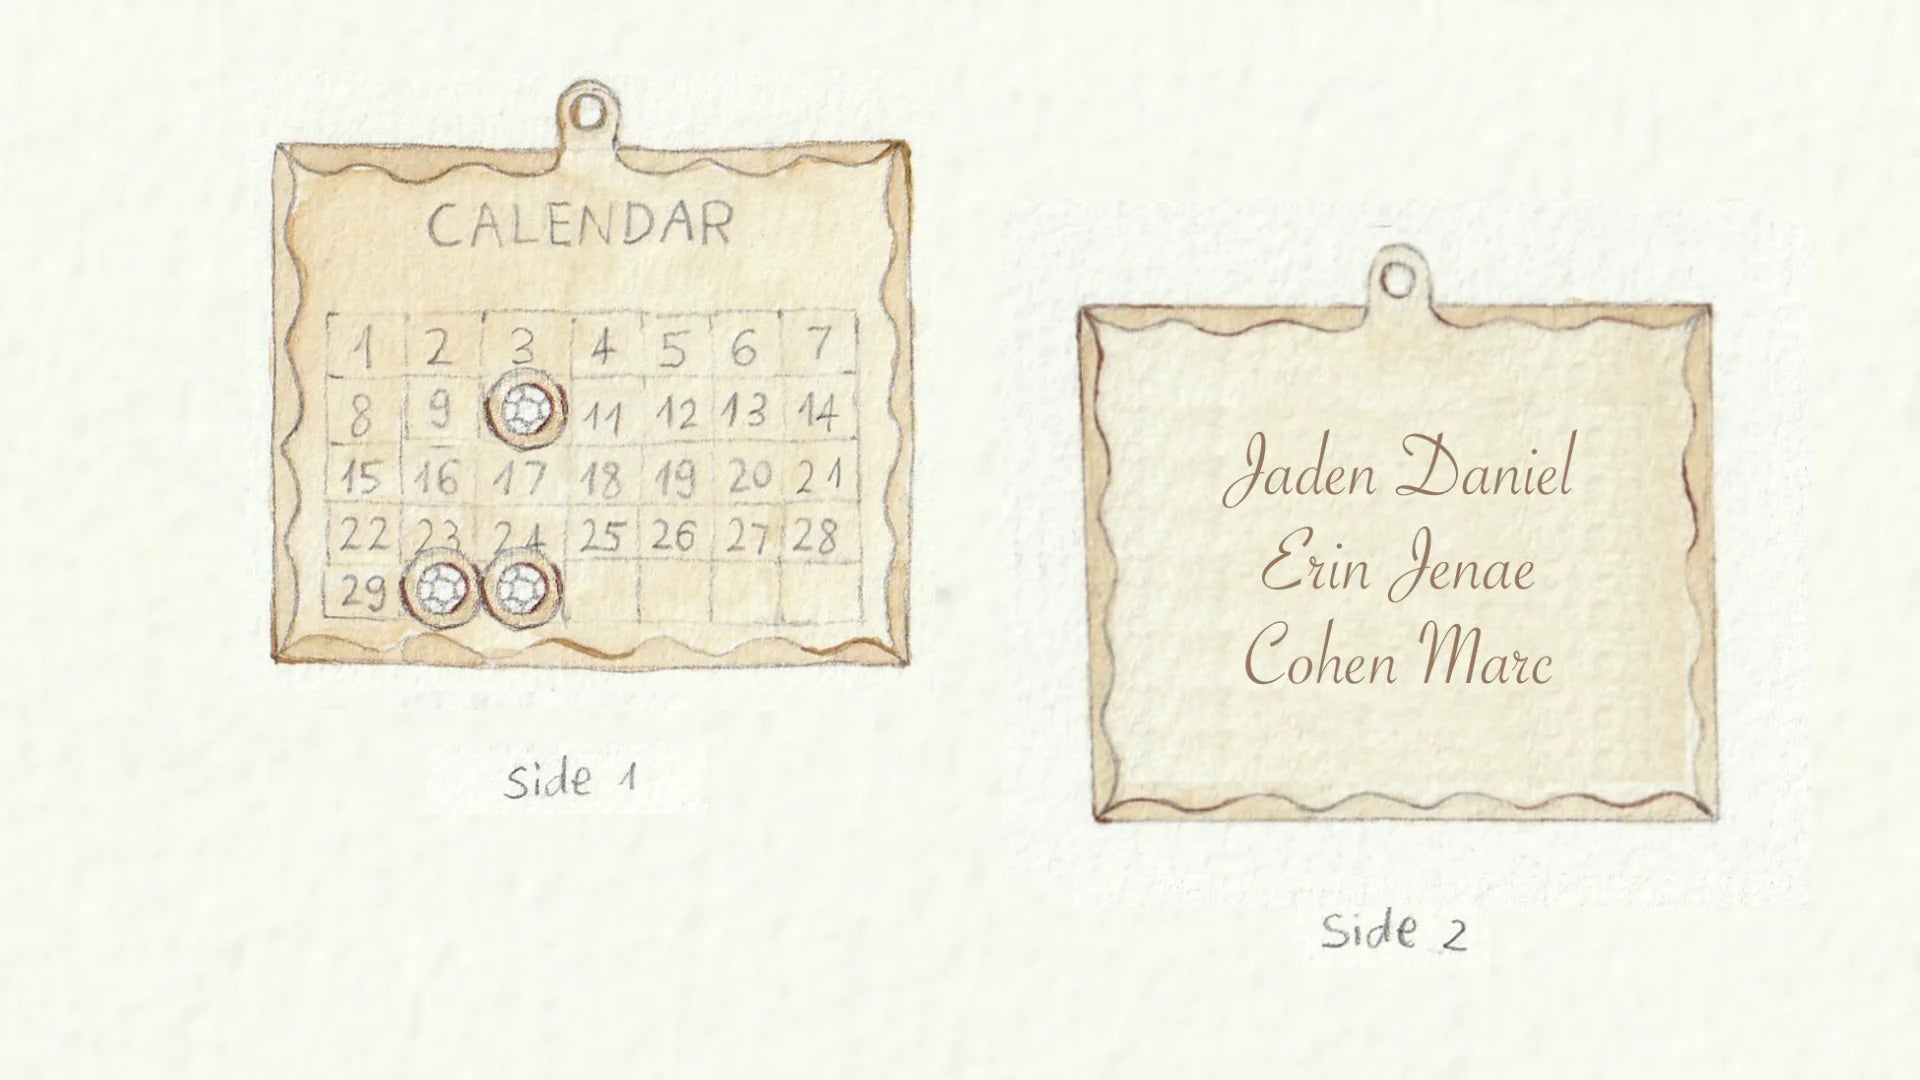 CALENDAR
1 2 3 4 5 6 7
8 9 11 12 13 14
15 16 17 18 19 20 21
22 23 24 25 26 27 28
29
Side 1
Jaden Daniel
Erin Jenae
Cohen Marc
Side 2